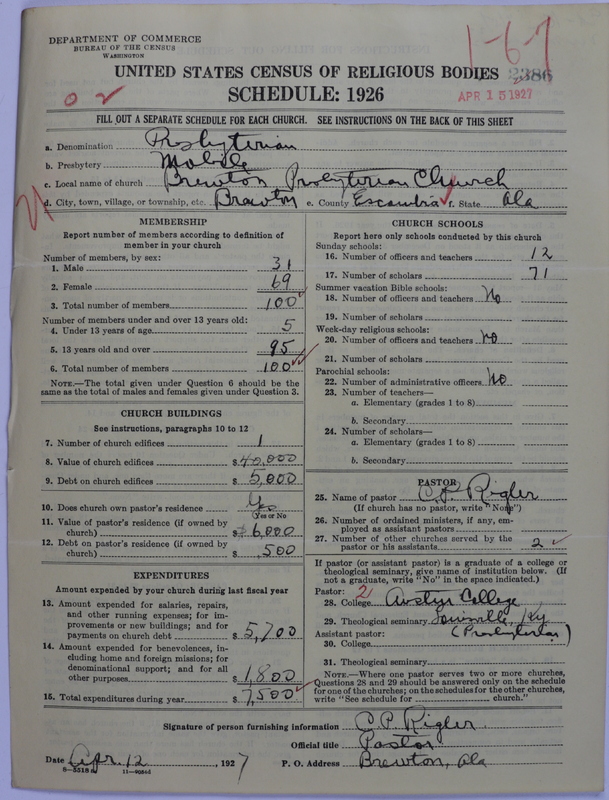 DEPARTMENT OF COMMERCE
BUREAU OF THE CENSUS
WASHINGTON
1-6-7
UNITED STATES CENSUS OF RELIGIOUS BODIES 2386
SCHEDULE: 1926
APR 15 1927
FILL OUT A SEPARATE SCHEDULE FOR EACH CHURCH. SEE INSTRUCTIONS ON THE BACK OF THIS SHEET
a. Denomination Presbyterian
b. Presbytery Mobile
c. Local name of church Brewton Presbyterian Church
d. City, town, village, or township, etc. Brewton e. County Escambia f. State Ala
MEMBERSHIP
Report number of members according to definition of
member in your church
Number of members, by sex:
1. Male 31
2. Female 69
3. Total number of members 100
Number of members under and over 13 years old:
4. Under 13 years of age 5
5. 13 years old and over 95
6. Total number of members 100
NOTE.—The total given under Question 6 should be the
same as the total of males and females given under Question 3.
CHURCH BUILDINGS
See instructions, paragraphs 10 to 12
7. Number of church edifices 1
8. Value of church edifices $ 40,000
9. Debt on church edifices $ 5,000
10. Does church own pastor's residence? Yes
Yes or No
11. Value of pastor's residence (if owned by
church) $ 6,000
12. Debt on pastor's residence (if owned by
church) $ 500
EXPENDITURES
Amount expended by your church during last fiscal year
13. Amount expended for salaries, repairs,
and other running expenses; for im-
provements or new buildings; and for
payments on church debt $ 5,700
14. Amount expended for benevolences, in-
cluding home and foreign missions; for
denominational support; and for all
other purposes $ 1,800
15. Total expenditures during year $ 7,500
CHURCH SCHOOLS
Report here only schools conducted by this church
Sunday schools:
16. Number of officers and teachers 12
17. Number of scholars 71
Summer vacation Bible schools:
18. Number of officers and teachers No
19. Number of scholars
Week-day religious schools:
20. Number of officers and teachers no
21. Number of scholars
Parochial schools:
22. Number of administrative officers No
23. Number of teachers—
a. Elementary (grades 1 to 8)
b. Secondary
24. Number of scholars—
a. Elementary (grades 1 to 8)
b. Secondary
PASTOR
25. Name of pastor C.P. Rigler
(If church has no pastor, write "None")
26. Number of ordained ministers, if any, em-
ployed as assistant pastors
27. Number of other churches served by the
pastor or his assistants 2
If pastor (or assistant pastor) is a graduate of a college or
theological seminary, give name of institution below. (If
not a graduate, write "No" in the space indicated.)
Pastor: 2
28. College Austyn College
29. Theological seminary Louisville, Ky
Assistant pastor: (Presbyterian)
30. College
31. Theological seminary
NOTE.—Where one pastor serves two or more churches,
Questions 28 and 29 should be answered only on the schedule
for one of the churches; on the schedules for the other churches,
write "See schedule for church."
Signature of person furnishing information C.P. Rigler
Official title Pastor
Date Apr. 12, 1927 P. O. Address Brewton, Ala